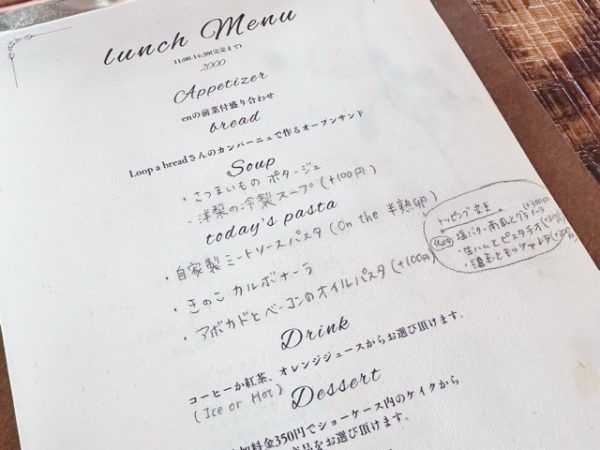 lunch Menu
11:00-14:30(完売まで)
2000
Appetizer
enの前菜付盛り合わせ
bread
Loop a breadさんのカンパーニュで作るオープンサンド
Soup
・さつまいものポタージュ
・洋梨の冷製スープ(+100円)
today's pasta
・自家製ミートソースパスタ(On the 半熟卵)
・きのこカルボナーラ
・アボカドとベーコンのオイルパスタ(+100円)
トッピング
塩バター南瓜とグラノーラ
・生ハムとピスタチオ
Drink
コーヒーか紅茶、オレンジジュースからお選び頂けます。
(Ice or Hot)
Dessert
料金350円でショーケース内のケイクから
をお選び頂けます。